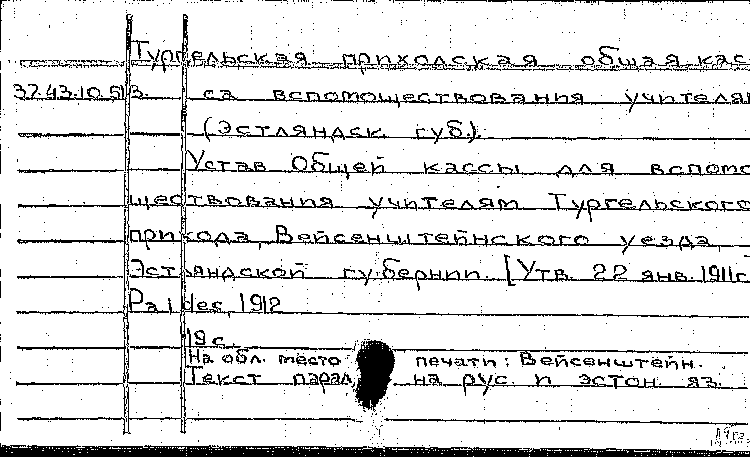 Тургельская приходская общая кас
37.43.10.513. са вспомоществования учителям
(Эстляндск. губ.).
Устав Общей кассы для вспомо
ществования учителям Тургельского
прихода, Вейсенштейнского уезда,
Эстляндской губернии. [Утв. 22 янв. 1911г.
Paides, 1912
19 с.
На обл. место печати: Вейсенштейн.
Текст парал. на рус. и эстон. яз.